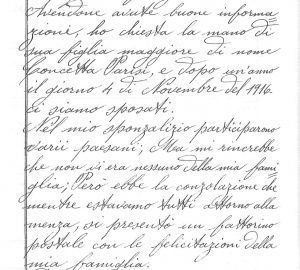 Avendone avute buone informa=
zione, ho chiesta la mano di
sua figlia maggiore di nome
Concetta Parisi, e dopo un'anno
il giorno 4 di Novembre del 1916.
ci siamo sposati.
Nel mio sponzalizio participarono
varii paesani; Ma mi rincrebbe
che non vi era nessuno della mia fami=
glia; Però ebbe la conzolazione che
mentre estavamo tutti attorno alla
menza, si presentò un fattorino
postale con le felicitazioni della
mia famiglia.